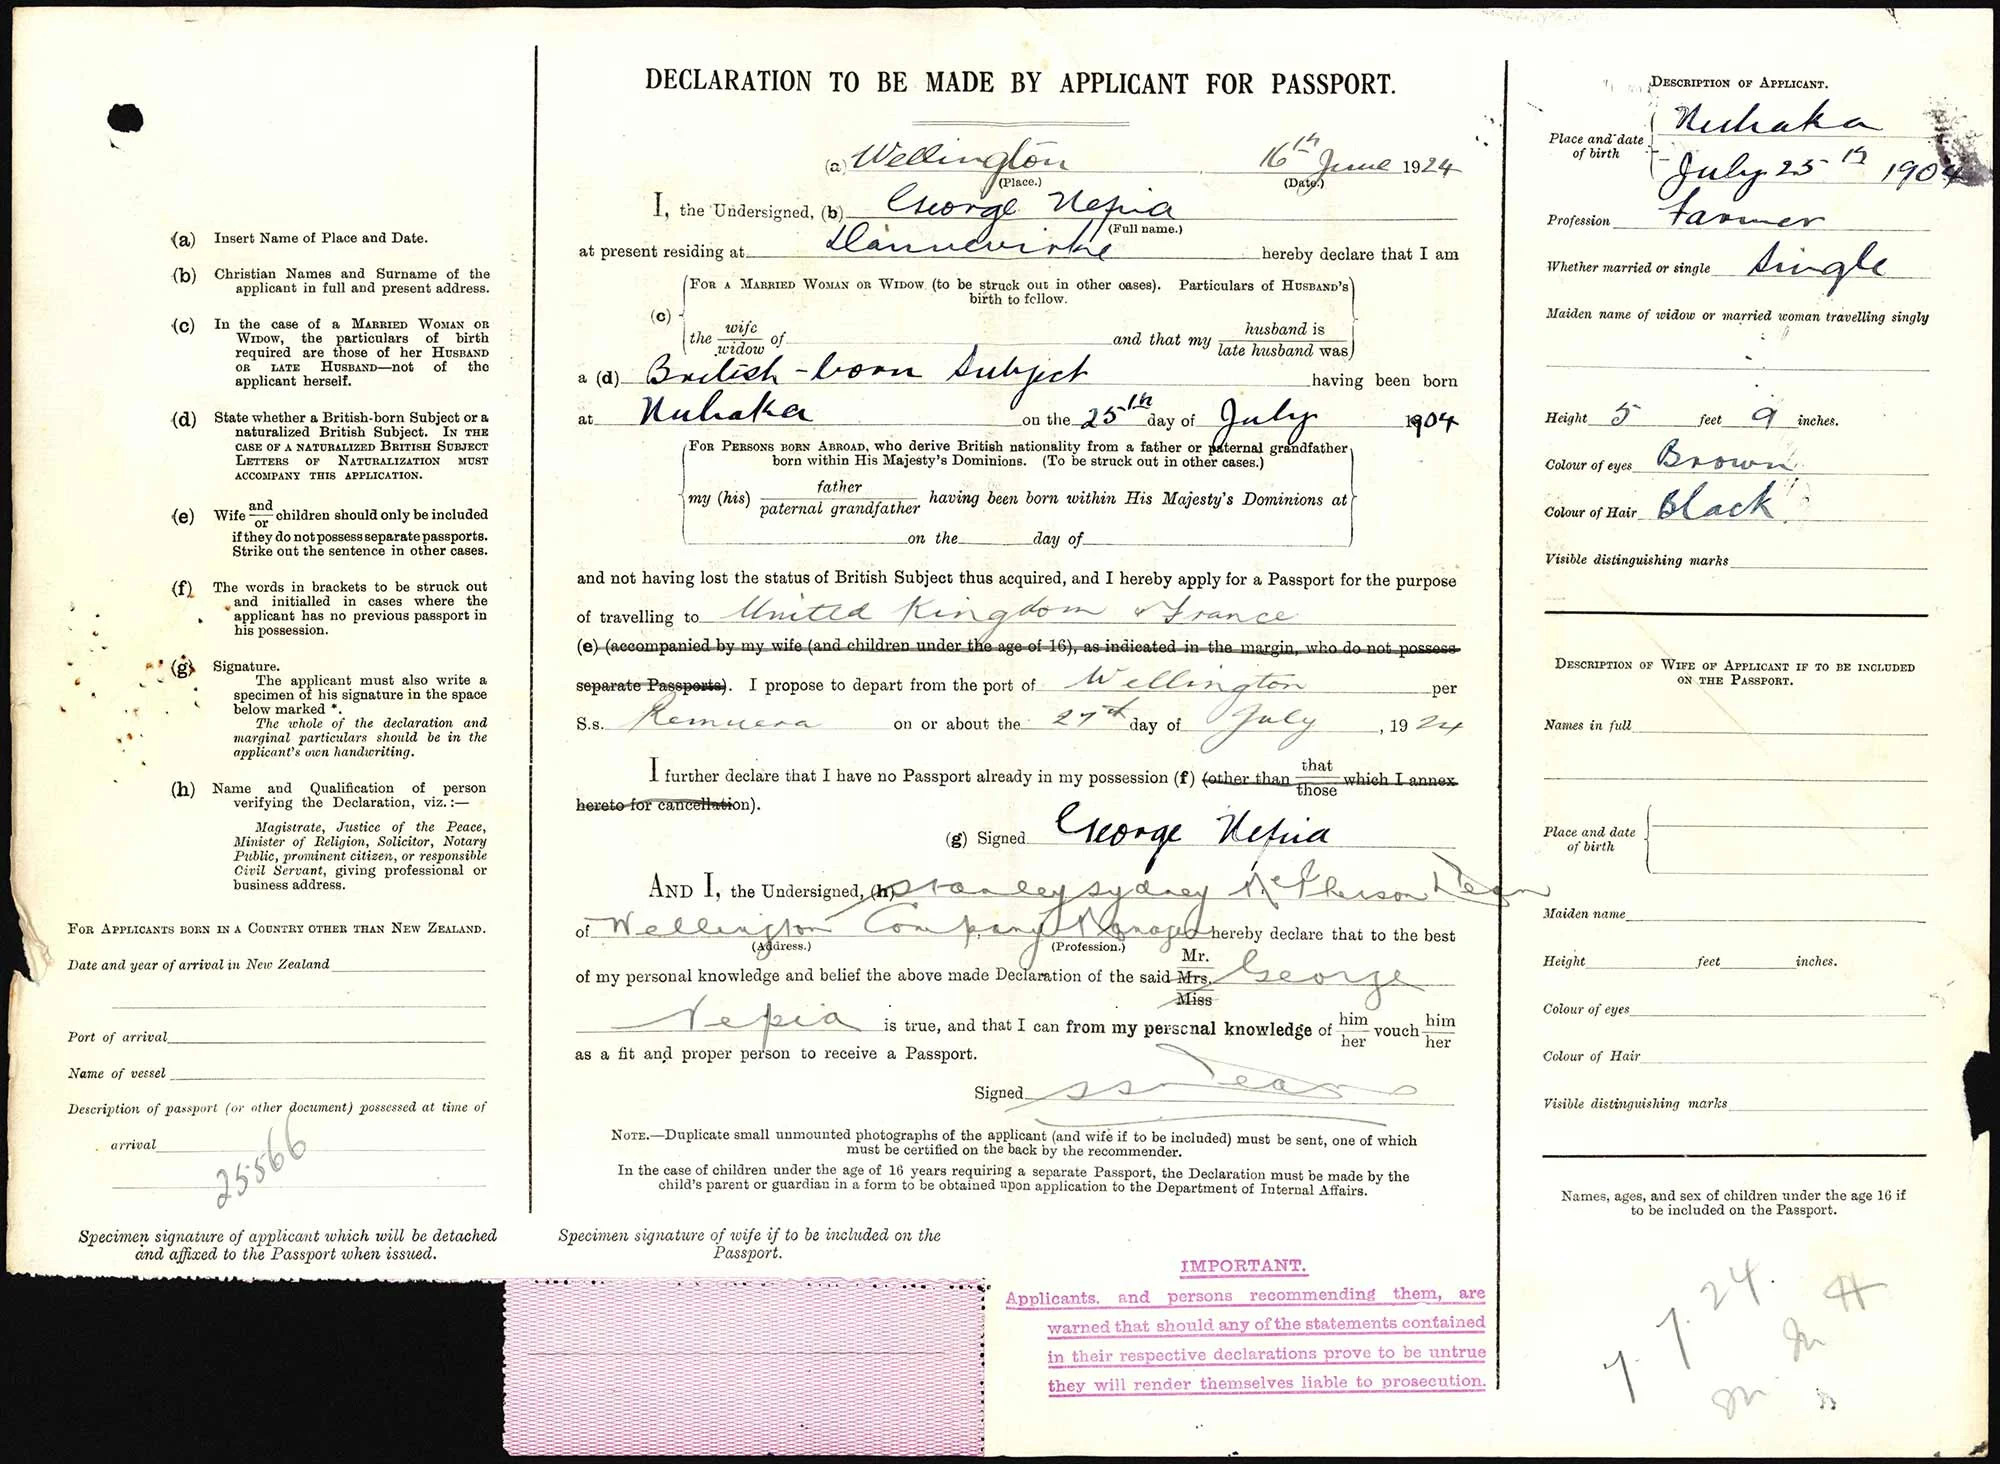 DECLARATION TO BE MADE BY APPLICANT FOR PASSPORT.
(a) Wellington 16th June 1924
(Place.) (Date.)
I, the Undersigned, (b) George Nepia
(Full name.)
at present residing at Dannevirke hereby declare that I am
(c)
For a Married Woman or Widow (to be struck out in other cases). Particulars of Husband's
birth to follow.
the wife/widow of and that my husband is/late husband was
a (d) British-born Subject having been born
at Nuhaka on the 25th day of July 1904
For Persons born Abroad, who derive British nationality from a father or paternal grandfather
born within His Majesty's Dominions. (To be struck out in other cases.)
my (his) father/paternal grandfather having been born within His Majesty's Dominions at
on the day of
and not having lost the status of British Subject thus acquired, and I hereby apply for a Passport for the purpose
of travelling to United Kingdom & France
(e) (accompanied by my wife (and children under the age of 16), as indicated in the margin, who do not possess
separate Passports). I propose to depart from the port of Wellington per
S.s. Remuera on or about the day of July, 1924
I further declare that I have no Passport already in my possession (f) (other than that/those which I annex
hereto for cancellation).
(g) Signed George Nepia
And I, the Undersigned, (h) Stanley Sydney McPherson Dean
of Wellington Company Manager hereby declare that to the best
(Address.) (Profession.)
of my personal knowledge and belief the above made Declaration of the said Mr./Mrs./Miss George
Nepia is true, and that I can from my personal knowledge of him/her vouch him/her
as a fit and proper person to receive a Passport.
Signed SSM Dean
Note.—Duplicate small unmounted photographs of the applicant (and wife if to be included) must be sent, one of which
must be certified on the back by the recommender.
In the case of children under the age of 16 years requiring a separate Passport, the Declaration must be made by the
child's parent or guardian in a form to be obtained upon application to the Department of Internal Affairs.
Specimen signature of wife if to be included on the
Passport.
IMPORTANT.
Applicants, and persons recommending them, are
warned that should any of the statements contained
in their respective declarations prove to be untrue
they will render themselves liable to prosecution.
(a) Insert Name of Place and Date.
(b) Christian Names and Surname of the
applicant in full and present address.
(c) In the case of a Married Woman or
Widow, the particulars of birth
required are those of her Husband
or late Husband—not of the
applicant herself.
(d) State whether a British-born Subject or a
naturalized British Subject. In the
case of a naturalized British Subject
Letters of Naturalization must
accompany this application.
(e) Wife and/or children should only be included
if they do not possess separate passports.
Strike out the sentence in other cases.
(f) The words in brackets to be struck out
and initialled in cases where the
applicant has no previous passport in
his possession.
(g) Signature.
The applicant must also write a
specimen of his signature in the space
below marked *.
The whole of the declaration and
marginal particulars should be in the
applicant's own handwriting.
(h) Name and Qualification of person
verifying the Declaration, viz.:—
Magistrate, Justice of the Peace,
Minister of Religion, Solicitor, Notary
Public, prominent citizen, or responsible
Civil Servant, giving professional or
business address.
For Applicants born in a Country other than New Zealand.
Date and year of arrival in New Zealand
Port of arrival
Name of vessel
Description of passport (or other document) possessed at time of
arrival
25566
Specimen signature of applicant which will be detached
and affixed to the Passport when issued.
Description of Applicant.
Place and date
of birth
Nuhaka
July 25th 1904
Profession Farmer
Whether married or single Single
Maiden name of widow or married woman travelling singly
Height 5 feet 9 inches.
Colour of eyes Brown
Colour of Hair Black
Visible distinguishing marks
Description of Wife of Applicant if to be included
on the Passport.
Names in full
Place and date
of birth
Maiden name
Height feet inches.
Colour of eyes
Colour of Hair
Visible distinguishing marks
Names, ages, and sex of children under the age 16 if
to be included on the Passport.
7.7.24.